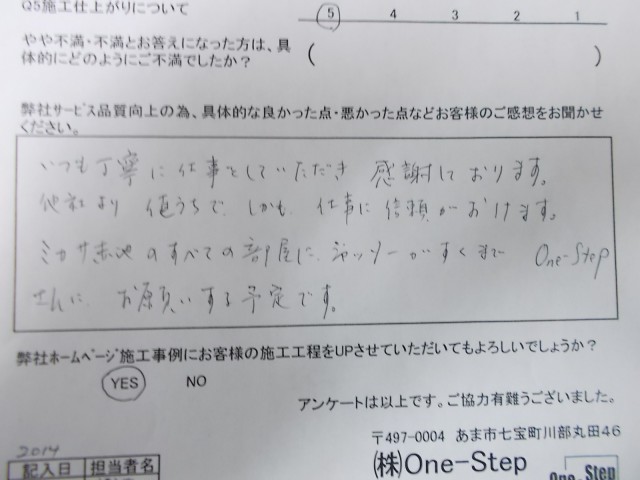 Q5施工仕上がりについて
5 4 3 2 1
やや不満・不満とお答えになった方は、具
体的にどのようにご不満でしたか？ ( )
弊社サービス品質向上の為、具体的な良かった点・悪かった点などお客様のご感想をお聞かせ
ください。
いつも丁寧に仕事をしていただき 感謝しております。
他社より 値うちで、しかも 仕事に信頼がおけます。
のすべての部屋に、 がすくまで One-Step
さんに お願いする予定です。
弊社ホームページ施工事例にお客様の施工工程をUPさせていただいてもよろしいでしょうか？
YES NO
アンケートは以上です。ご協力有難うございました。
〒497-0004 あま市七宝町川部丸田46
2014
(株)One-Step
記入日 担当者名
One-Step